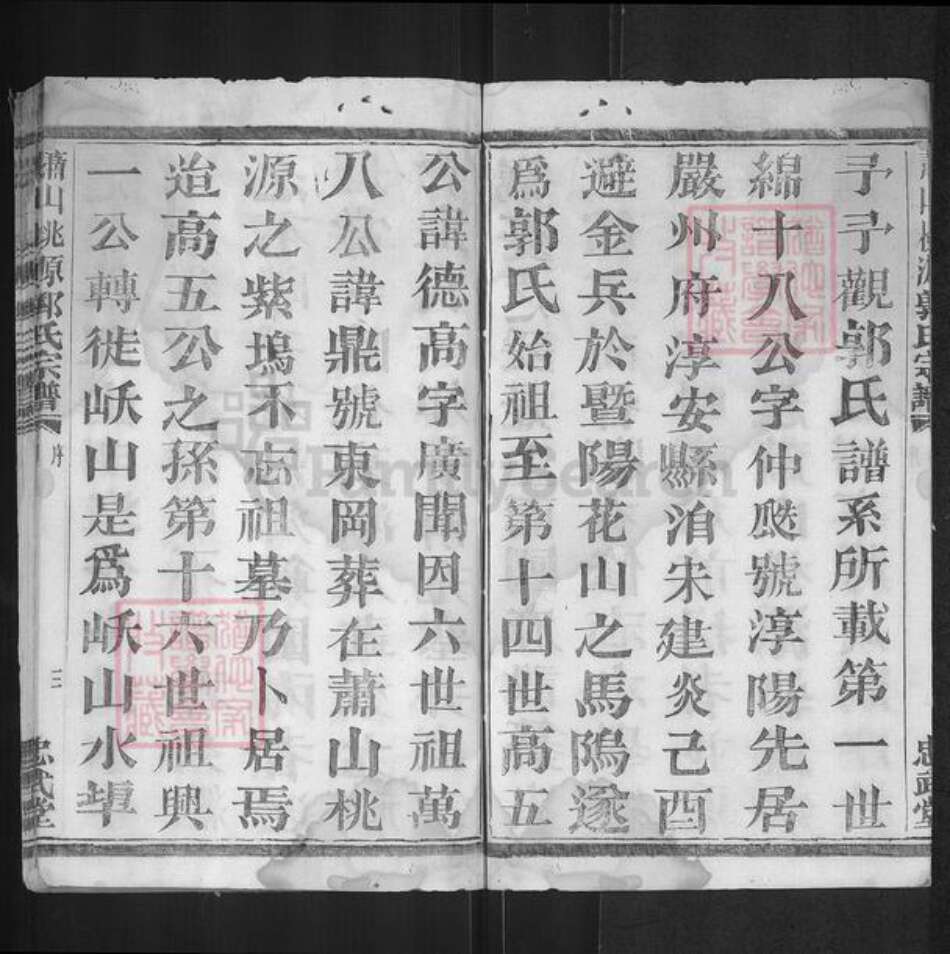 予予觀郭氏譜系所載第一世
綿十八公字仲颷號淳陽先居
嚴州府淳安縣洎宋建炎己酉
避金兵於暨陽花山之馬隖遂
爲郭氏始祖至第十四世高五
公諱德高字廣聞因六世祖萬
八公諱鼎號東岡葬在蕭山桃
源之紫塢不忘祖墓乃卜居焉
迨高五公之孫第十六世祖興
一公轉徙岆山是爲岆山水埠
蕭山桃源郭氏宗譜
三
忠武堂
FamilySearch